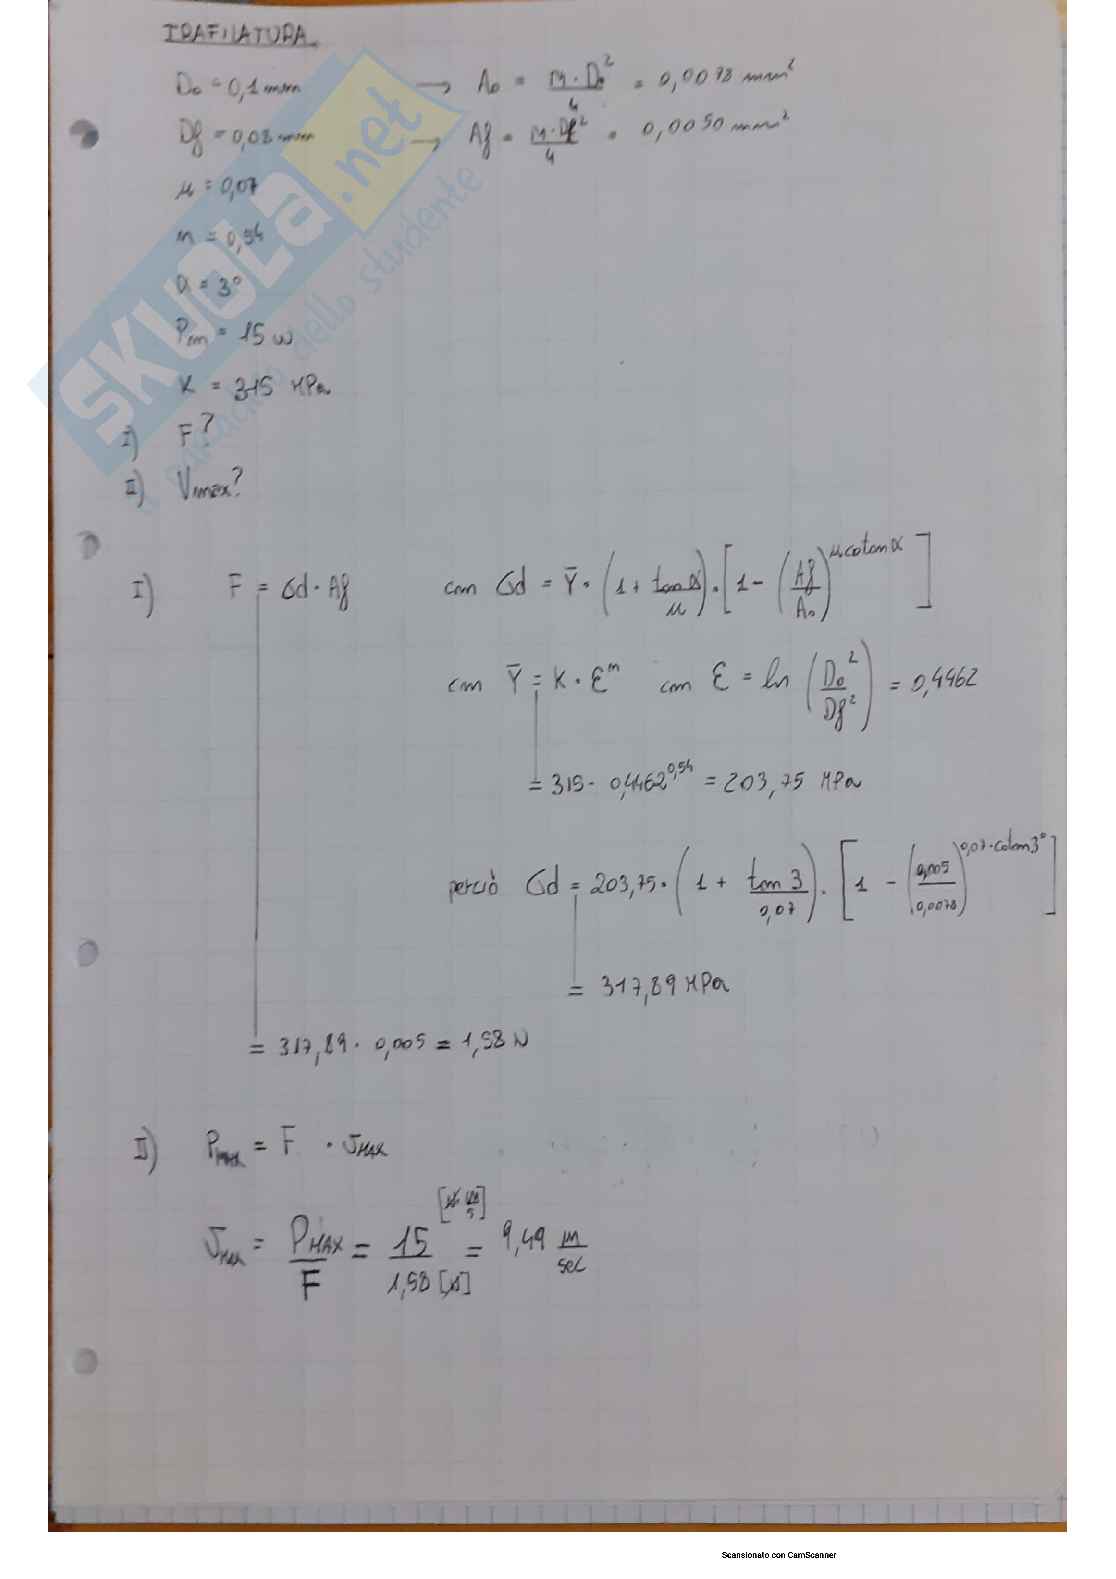 TRAFILATURA
D₀ = 0,1 mm → A₀ = π · D₀² / 4 = 0,0078 mm²
Df = 0,08 mm → Af = π · Df² / 4 = 0,0050 mm²
μ = 0,07
n = 0,54
α = 3°
Pm = 15 W
K = 315 MPa
I) F?
II) Vmax?
I) F = σd · Af con σd = Ȳ · (1 + tan α / μ) · [1 - (Af / A₀)^μ cotan α]
con Ȳ = K · ε^n con ε = ln (D₀² / Df²) = 0,4462
= 315 · 0,4462^0,54 = 203,75 MPa
perciò σd = 203,75 · (1 + tan 3 / 0,07) · [1 - (0,005 / 0,0078)^0,07 · cotan 3°]
= 317,89 MPa
= 317,89 · 0,005 = 1,58 N
II) Pmax = F · VMAX
VMAX = PMAX / F = 15 [N · m / s] / 1,58 [N] = 9,49 m / sec
SKUOLA.net
dello studente
Scansionato con CamScanner